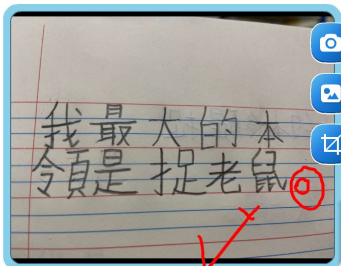 我最大的本
領是捉老鼠。